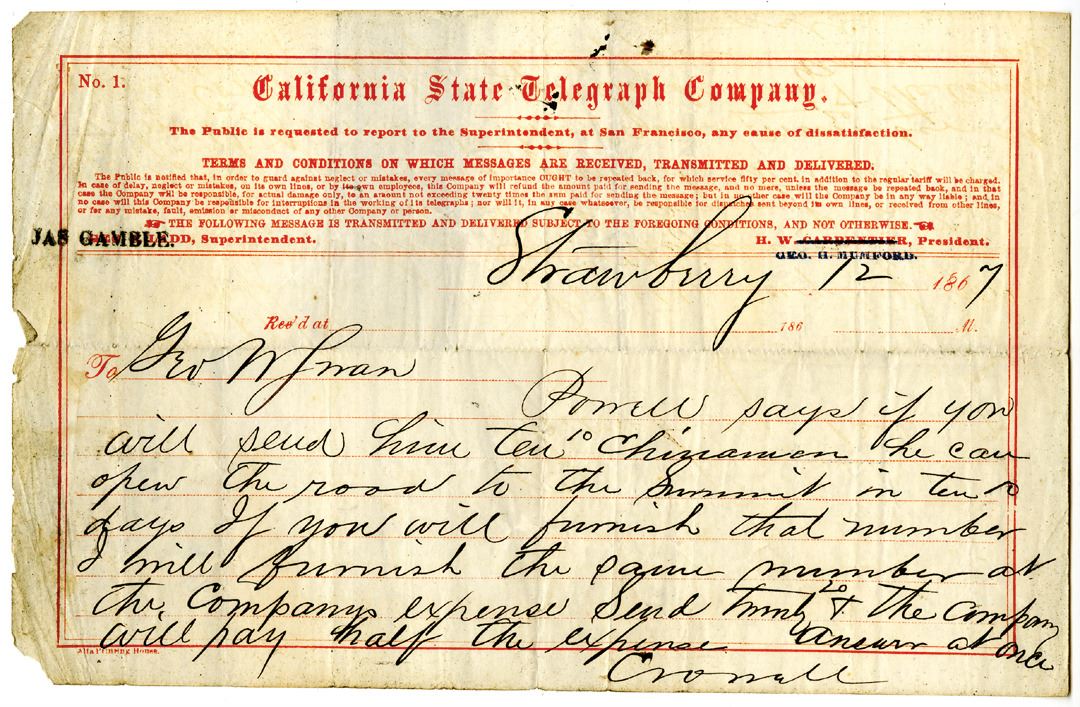 No. 1.
California State Telegraph Company.
The Public is requested to report to the Superintendent, at San Francisco, any cause of dissatisfaction.
TERMS AND CONDITIONS ON WHICH MESSAGES ARE RECEIVED, TRANSMITTED AND DELIVERED.
The Public is notified, that, in order to guard against neglect or mistakes, every message of importance OUGHT to be repeated back, for which service fifty per cent. in addition to the regular tariff will be charged.
In case of delay, neglect or mistakes, on its own lines, or by its own employees, this Company will refund the amount paid for sending the message, and no more, unless the message be repeated back, and in that
case the Company will be responsible, for actual damage only, to an amount not exceeding twenty times the sum paid for sending the message; but in no other case will the Company be in any way liable; and, in
no case will this Company be responsible for interruptions in the working of its telegraphs; nor will it, in any case whatsoever, be responsible for dispatches sent beyond its own lines, or received from other lines,
or for any mistake, fault, omission or misconduct of any other Company or person.
THE FOLLOWING MESSAGE IS TRANSMITTED AND DELIVERED SUBJECT TO THE FOREGOING CONDITIONS, AND NOT OTHERWISE.
JAS GAMBLE. LADD, Superintendent. H. W. CARPENTIER, President.
GEO. H. MUMFORD.
Strawberry 12 1867
Rec'd at 186 M.
To Geo W Swan
Powell says if you
will send him ten 10 Chinamen he can
open the road to the Summit in ten 10
days If you will furnish that number
I will furnish the same number at
the Companys expense Send 20 & the Company
will pay half the expense Answer at once
Alta Printing House.